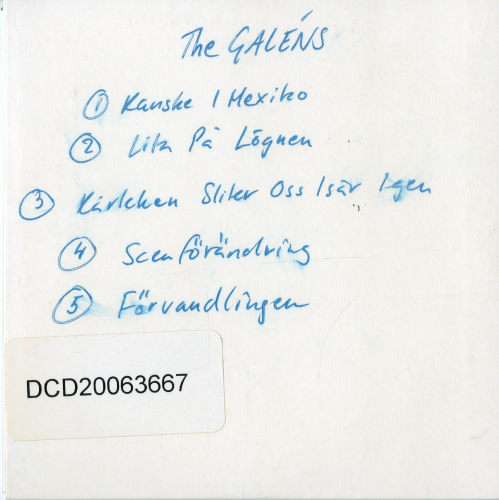 The GALÉNS
① Kanske I Mexiko
② Lita På Lögnen
③ Kärleken Sliter Oss Isär Igen
④ Scenförändring
⑤ Förvandlingen
DCD20063667